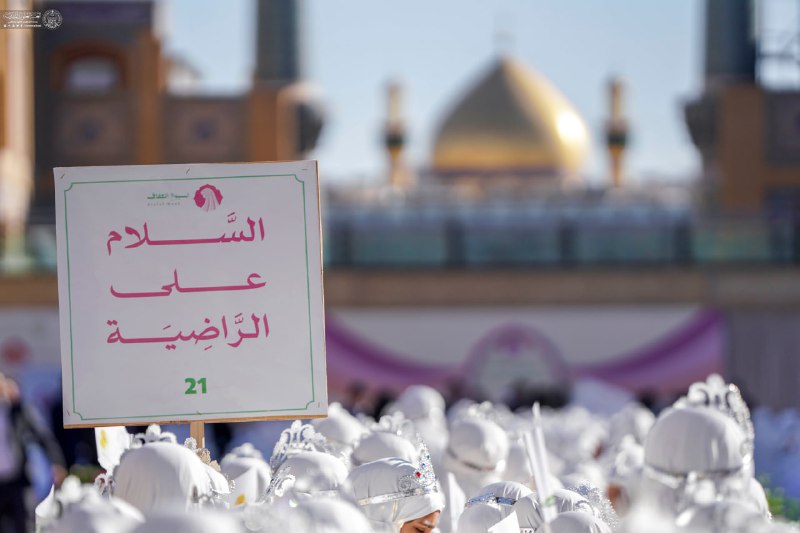 السَّلام
على
الرَّاضِيَة
21